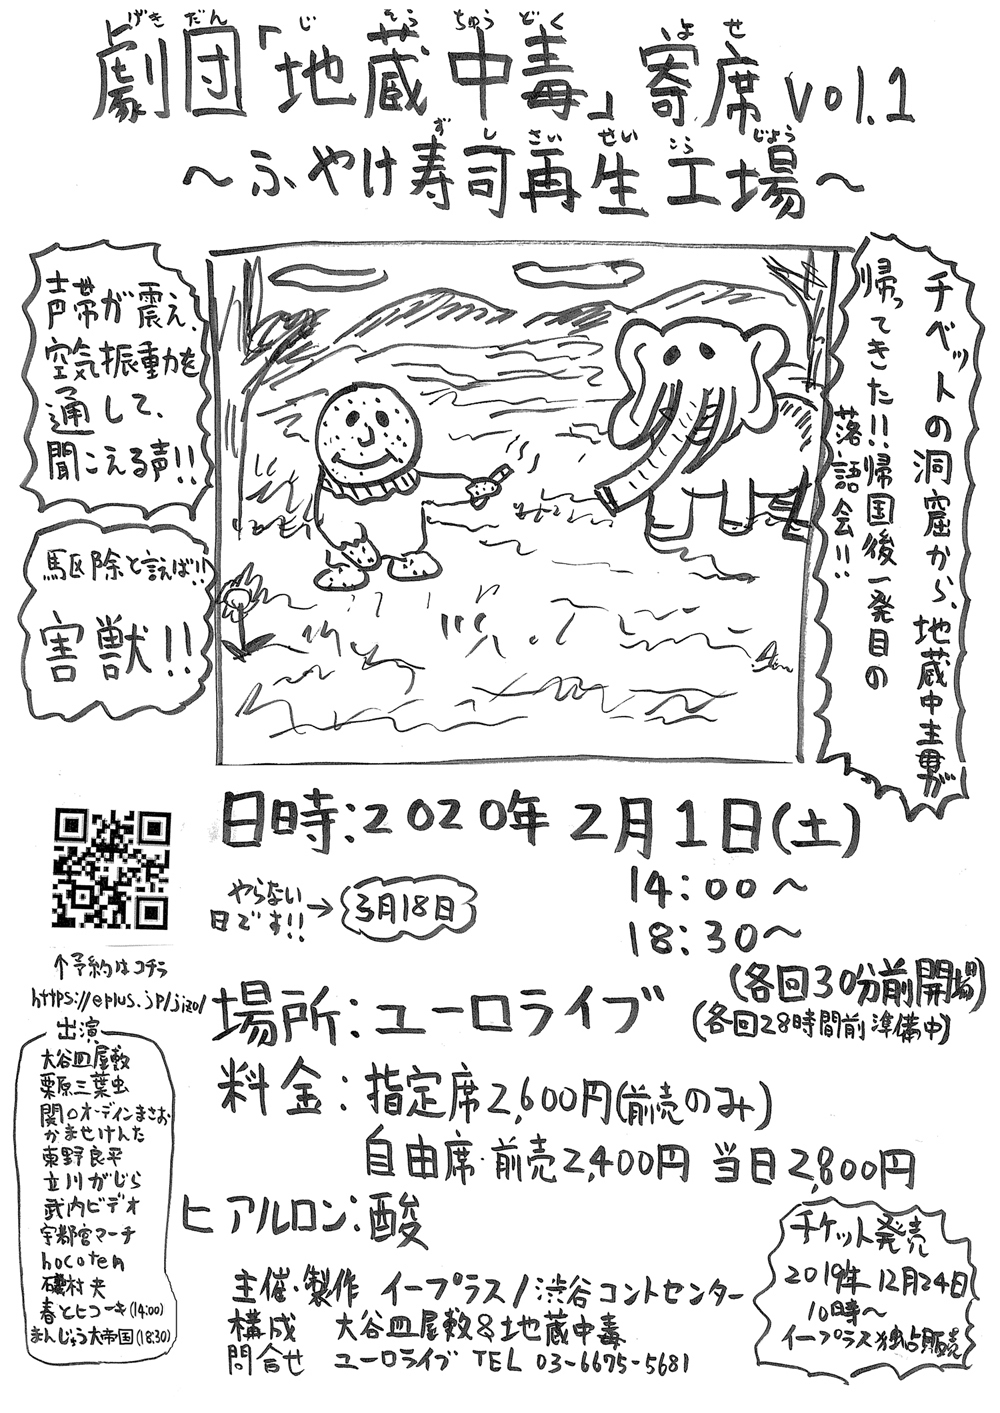 劇団「地蔵中毒」寄席 vol.1
げきだん じぞうちゅうどく よせ
～ふやけ寿司再生工場～
ずし さいせい こうじょう
チベットの洞窟から、地蔵中毒が
帰ってきた!!帰国後一発目の
落語会!!
声帯が震え、
空気振動を
通して、
聞こえる声!!
駆除と言えば!!
害獣!!
日時:2020年 2月1日(土)
14:00～
18:30～
(各回30分前開場)
(各回28時間前準備中)
やらない
日です!!→
3月18日
↑予約はコチラ
https://eplus.jp/jizo/
場所:ユーロライブ
料金:指定席2,600円(前売のみ)
自由席・前売2,400円 当日2,800円
ヒアルロン:酸
出演
大谷皿屋敷
栗原三葉虫
関口オーディンまさお
かませけんた
東野良平
立川がじら
武内ビデオ
宇都宮マーチ
hocoten
磯村夬
春とヒコーキ(14:00)
まんじゅう大帝国(18:30)
主催・製作 イープラス/渋谷コントセンター
構成 大谷皿屋敷&地蔵中毒
問合せ ユーロライブ TEL 03-6675-5681
チケット発売
2019年12月24日
10時～
イープラス独占販売